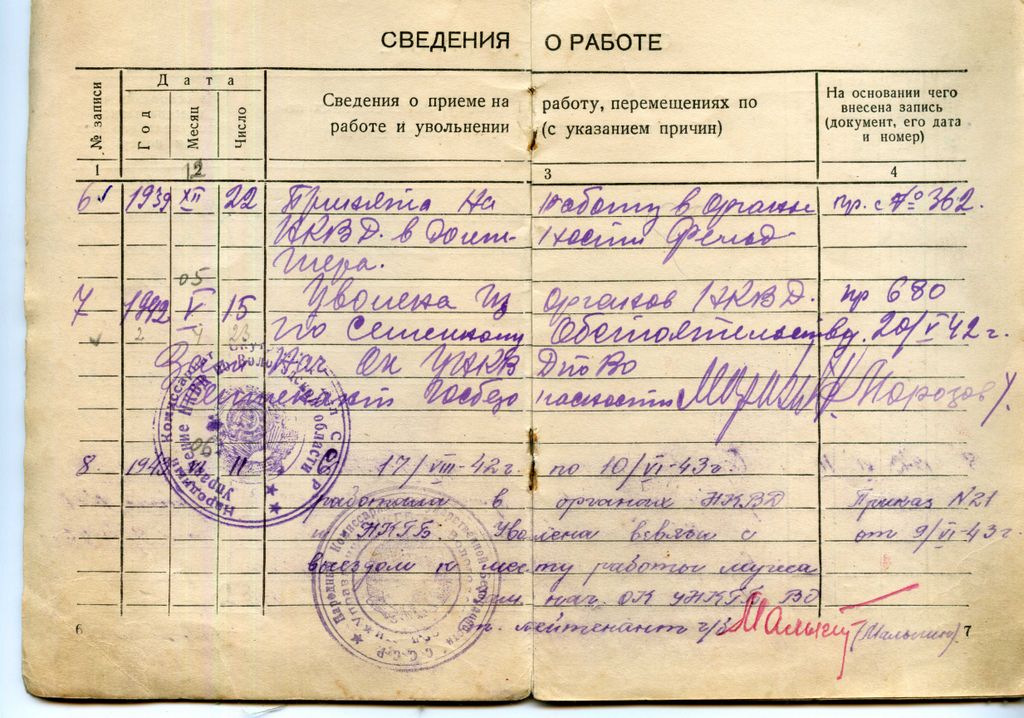 СВЕДЕНИЯ О РАБОТЕ
№ записи
Дата
Год
Месяц
Число
Сведения о приеме на работу, перемещениях по
работе и увольнении (с указанием причин)
На основании чего
внесена запись
(документ, его дата
и номер)
1
12
3
4
6 1939 XII 22 Принята на работу в органы пр. с № 362.
НКВД. в должности Фельд
05
7 1942 V 15 Уволена из органов НКВД. пр 680
2 4 23
по Семейному Обстоятельству. 20/V 42 г.
Зам Нач ОК УНКВД по ВО
Лейтенант Госбезопасности Морозов
06
8. 1943 VI 11 17/VIII-42 г. по 10/VI-43 г
работала в органах НКВД Приказ N 21
и НКГБ. Уволена в связи с от 9/VI-43 г
выездом к месту работы мужа
нач. ОК УНКГБ ВО
лейтенант г/б (Малыгин)
Народный Комиссариат Внутренних Дел СССР
Управление НКВД по Вологодской области
Народный Комиссариат Государственной Безопасности С.С.С.Р.
6
7